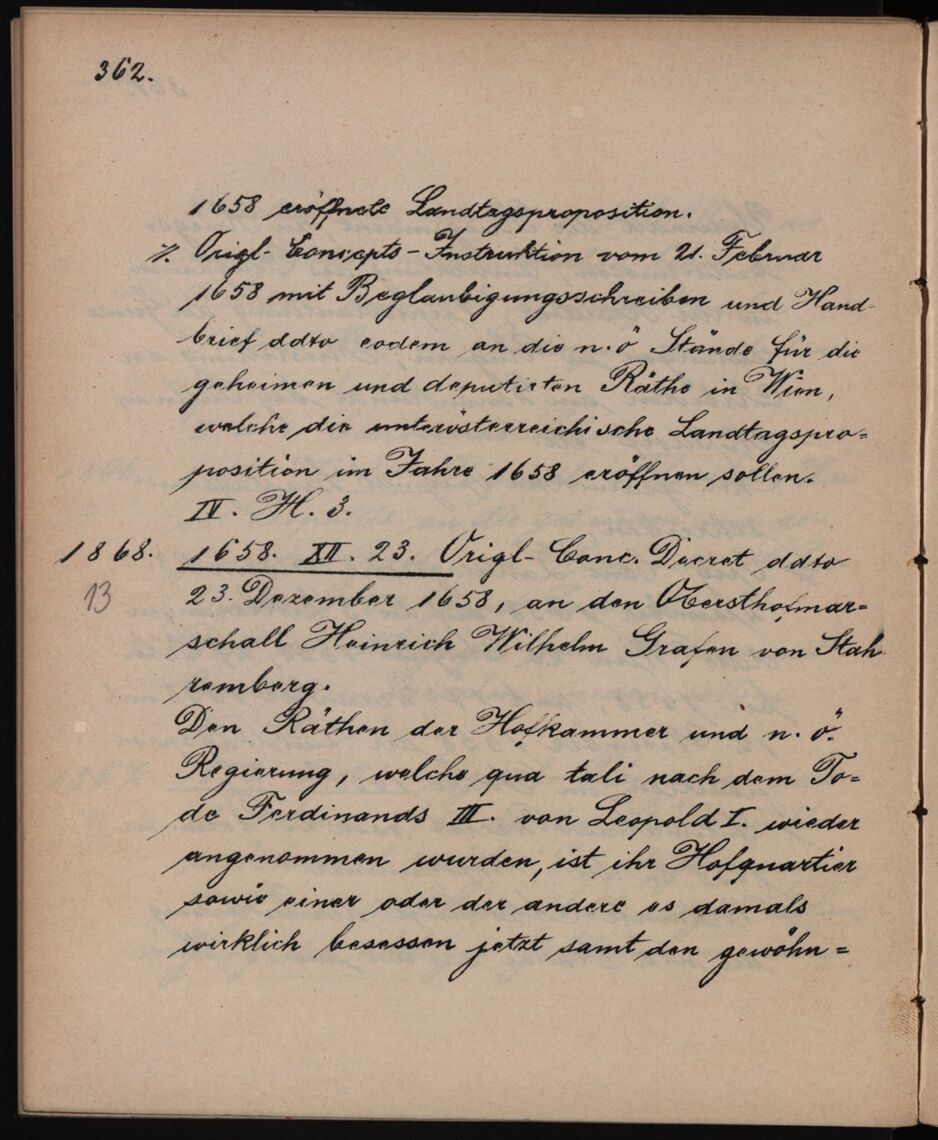 362.
1658 eröffnete Landtagsproposition.
%. Origl- Concepts-Instruktion vom 21. Februar
1658 mit Beglaubigungsschreiben und Hand-
brief ddto eodem an die n.ö Stände für die
geheimen und deputirten Räthe in Wien,
welche die unterösterreichische Landtagspro=
position im Jahre 1658 eröffnen sollen.
IV. H. 3.
1868. 1658. XII. 23. Origl- Conc. Decret ddto
13 23. Dezember 1658, an den Obersthofmar=
schall Heinrich Wilhelm Grafen von Stah
remberg.
Den Räthen der Hofkammer und n. ö.
Regierung, welche qua tali nach dem To=
de Ferdinands III. von Leopold I. wieder
angenommen wurden, ist ihr Hofquartier
sowie einer oder der andere es damals
wirklich besessen jetzt samt den gewöhn=